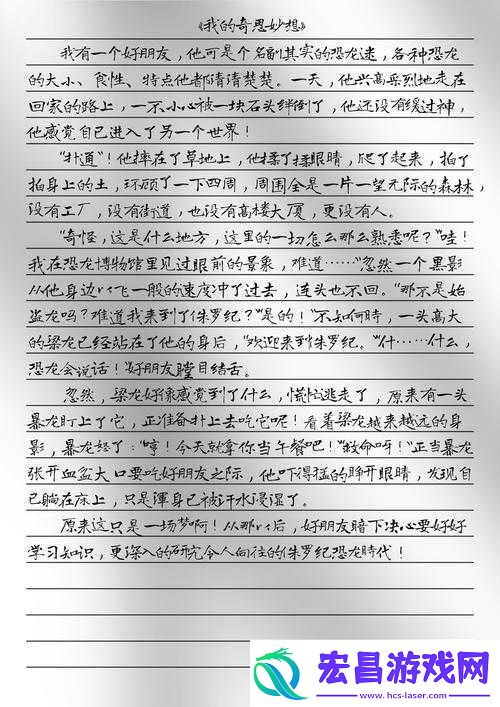 《我的奇思妙想》
我有一个好朋友，他可是个名副其实的恐龙迷，各种恐龙
的大小、食性、特点他都清清楚楚。一天，他兴高采烈地走在
回家的路上，一不小心被一块石头绊倒了，他还没有缓过神，
他感觉自己进入了另一个世界！
“扑通”！他摔在了草地上，他揉了揉眼睛，爬了起来，拍了
拍身上的土，环顾了一下四周，周围全是一片一望无际的森林，
没有工厂，没有街道，也没有高楼大厦，更没有人。
“奇怪，这是什么地方，这里的一切怎么那么熟悉呢？”哇！
我在恐龙博物馆里见过眼前的景象，难道……”忽然一个黑影
从他身边以飞一般的速度冲了过去，连头也不回。“那不是始
盗龙吗？难道我来到了侏罗纪？”是的！”不知何時，一头高大
的梁龙已经站在了他的身后，“欢迎来到侏罗纪。”什……什么，
恐龙会说话！”好朋友瞠目结舌。
忽然，梁龙好像感觉到了什么，慌忙逃走了，原来有一头
暴龙盯上了它，正准备扑上去吃它呢！看着梁龙越来越远的身
影，暴龙怒了：“哼！今天就拿你当午餐吧！”救命呀！”正当暴龙
张开血盆大口要吃好朋友之际，他吓得猛的睁开眼睛，发现自
己躺在床上，只是渾身已被汗水浸湿了。
原来这只是一场梦啊！从那以后，好朋友暗下决心要好好
学习知识，更深入的研究令人向往的侏罗纪恐龙時代！
宏昌游戏网
www.hcs-laser.com